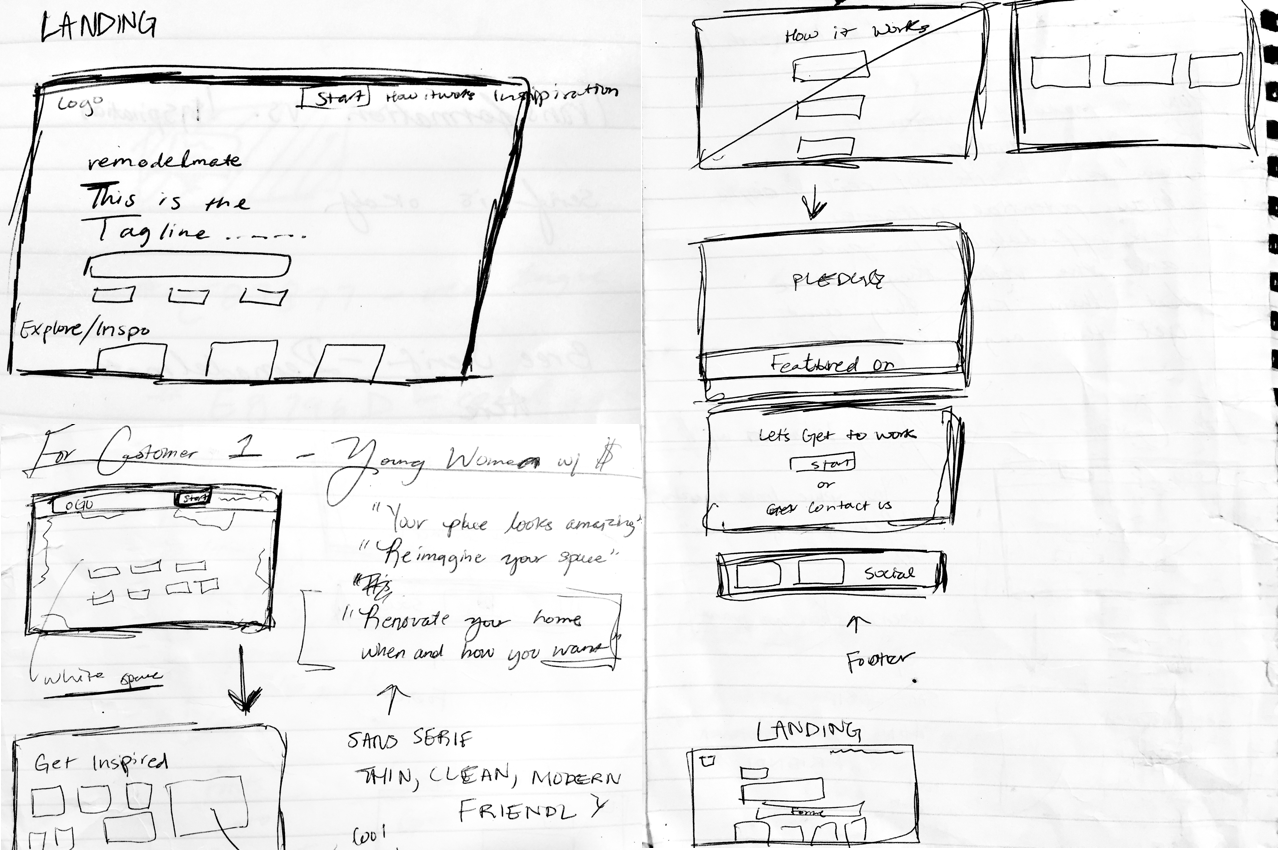 LANDING
Logo
Start
How it works
Inspipiration
remodelmate
This is the
Tagline .......
Explore/Inspo
For Customer 1 - Young Women w/ $
LOGO
Start
"Your place looks amazing"
"Reimagine your space"
"Renovate your home
when and how you want"
white space
SANS SERIF
THIN, CLEAN, MODERN
FRIENDLY
Cool
Get Inspired
How it works
PLEDGE
Featured on
Let's Get to work
Start
or
Contact us
Social
Footer
LANDING